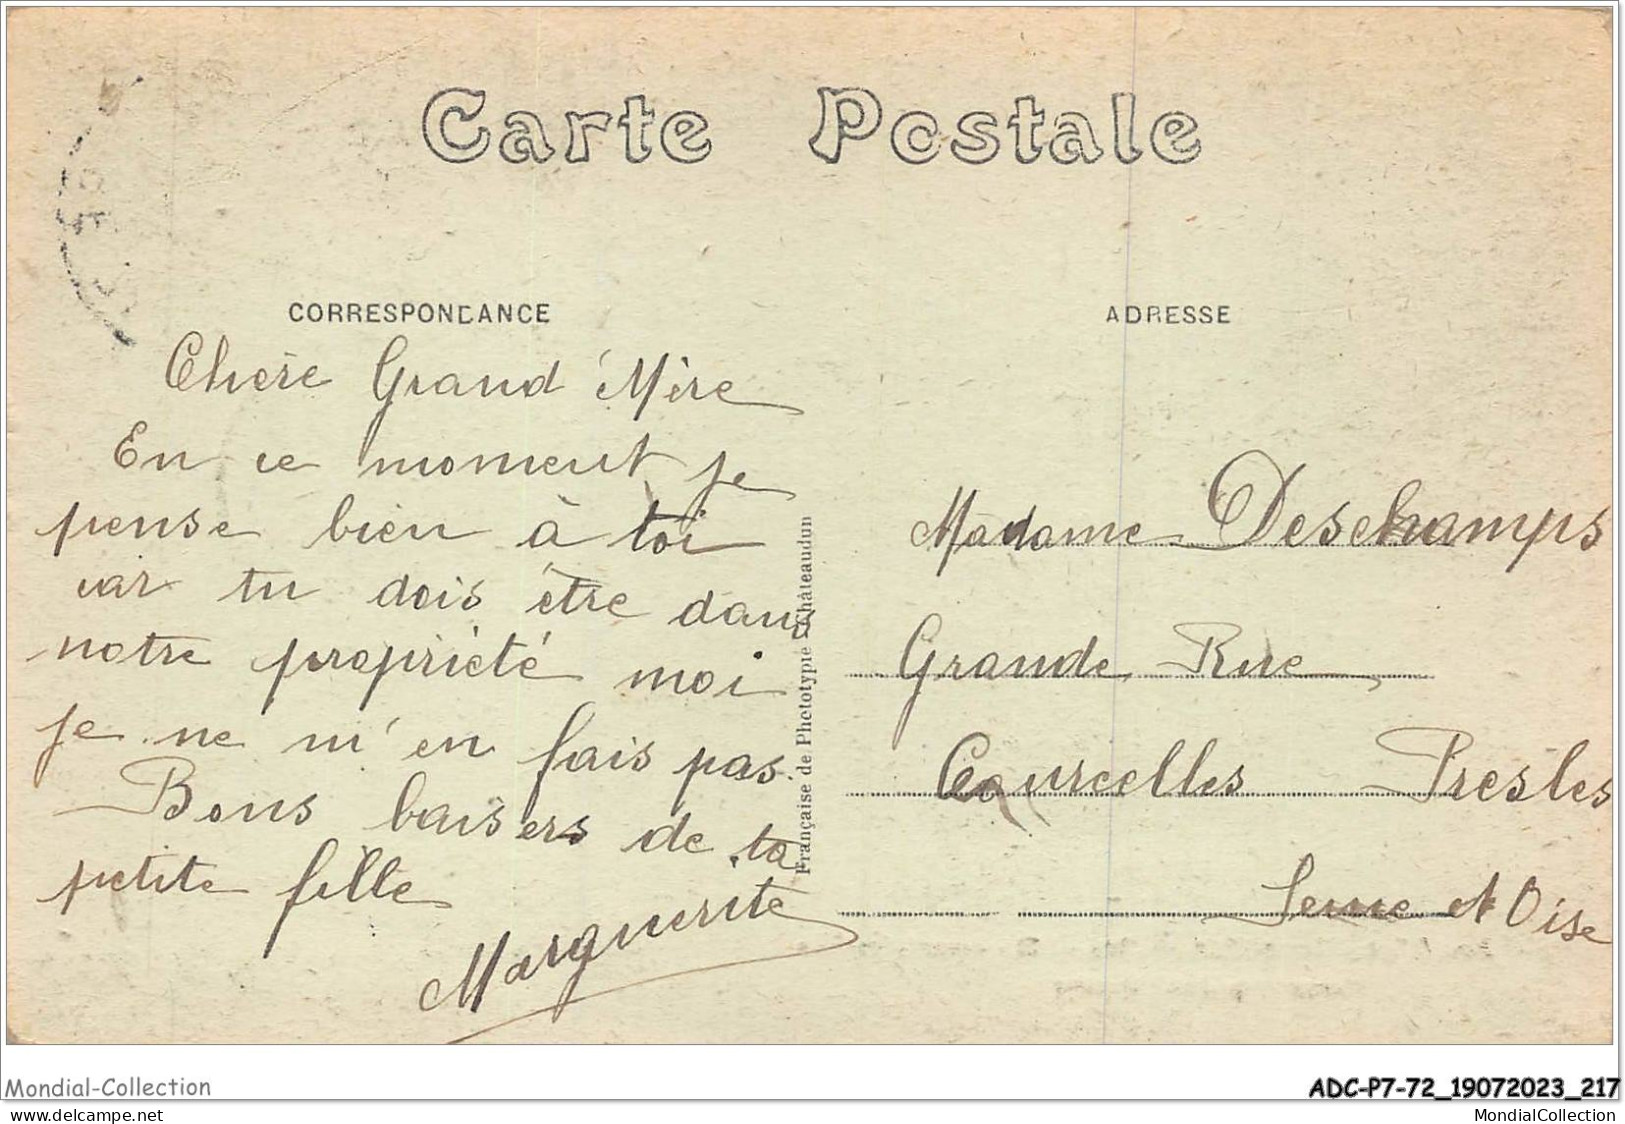 Carte Postale
CORRESPONDANCE
Chère Grand Mère
En ce moment je
pense bien à toi
car tu dois être dans
notre propriété moi
je ne m'en fais pas.
Bons baisers de ta
petite fille
Marguerite
Française de Phototypie Châteaudun
ADRESSE
Madame Deschamps
Grande Rue
Courcelles Presles
Seine et Oise
Mondial-Collection
ADC-P7-72_19072023_217
delcampe.net
MondialCollection